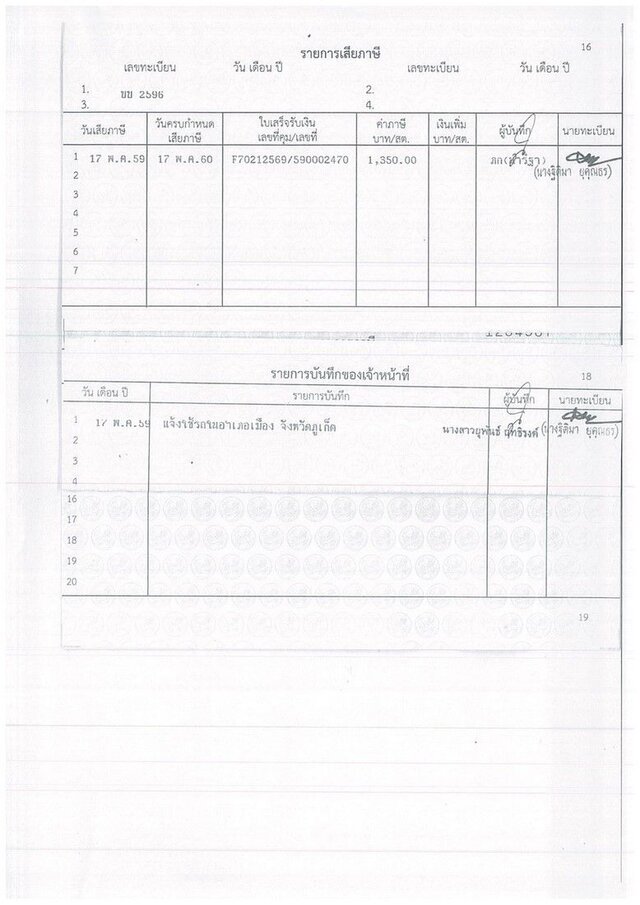 16
รายการเสียภาษี
เลขทะเบียน วัน เดือน ปี เลขทะเบียน วัน เดือน ปี
1. ขช 2596 2.
3. 4.
วันเสียภาษี วันครบกำหนดเสียภาษี ใบเสร็จรับเงิน เลขที่คุม/เลขที่ ค่าภาษี บาท/สต. เงินเพิ่ม บาท/สต. ผู้บันทึก นายทะเบียน
1 17 พ.ค.59 17 พ.ค.60 F70212569/590002470 1,350.00
2 (นางฐิติมา ยุคุณธร)
3
4
5
6
7
1234567
รายการบันทึกของเจ้าหน้าที่ 18
วัน เดือน ปี รายการบันทึก ผู้บันทึก นายทะเบียน
1 17 พ.ค.59 แจ้งใช้รถในอำเภอเมือง จังหวัดภูเก็ต นางสาวยุพันธ์ (นางฐิติมา ยุคุณธร)
2
3
4
16
17
18
19
20
19